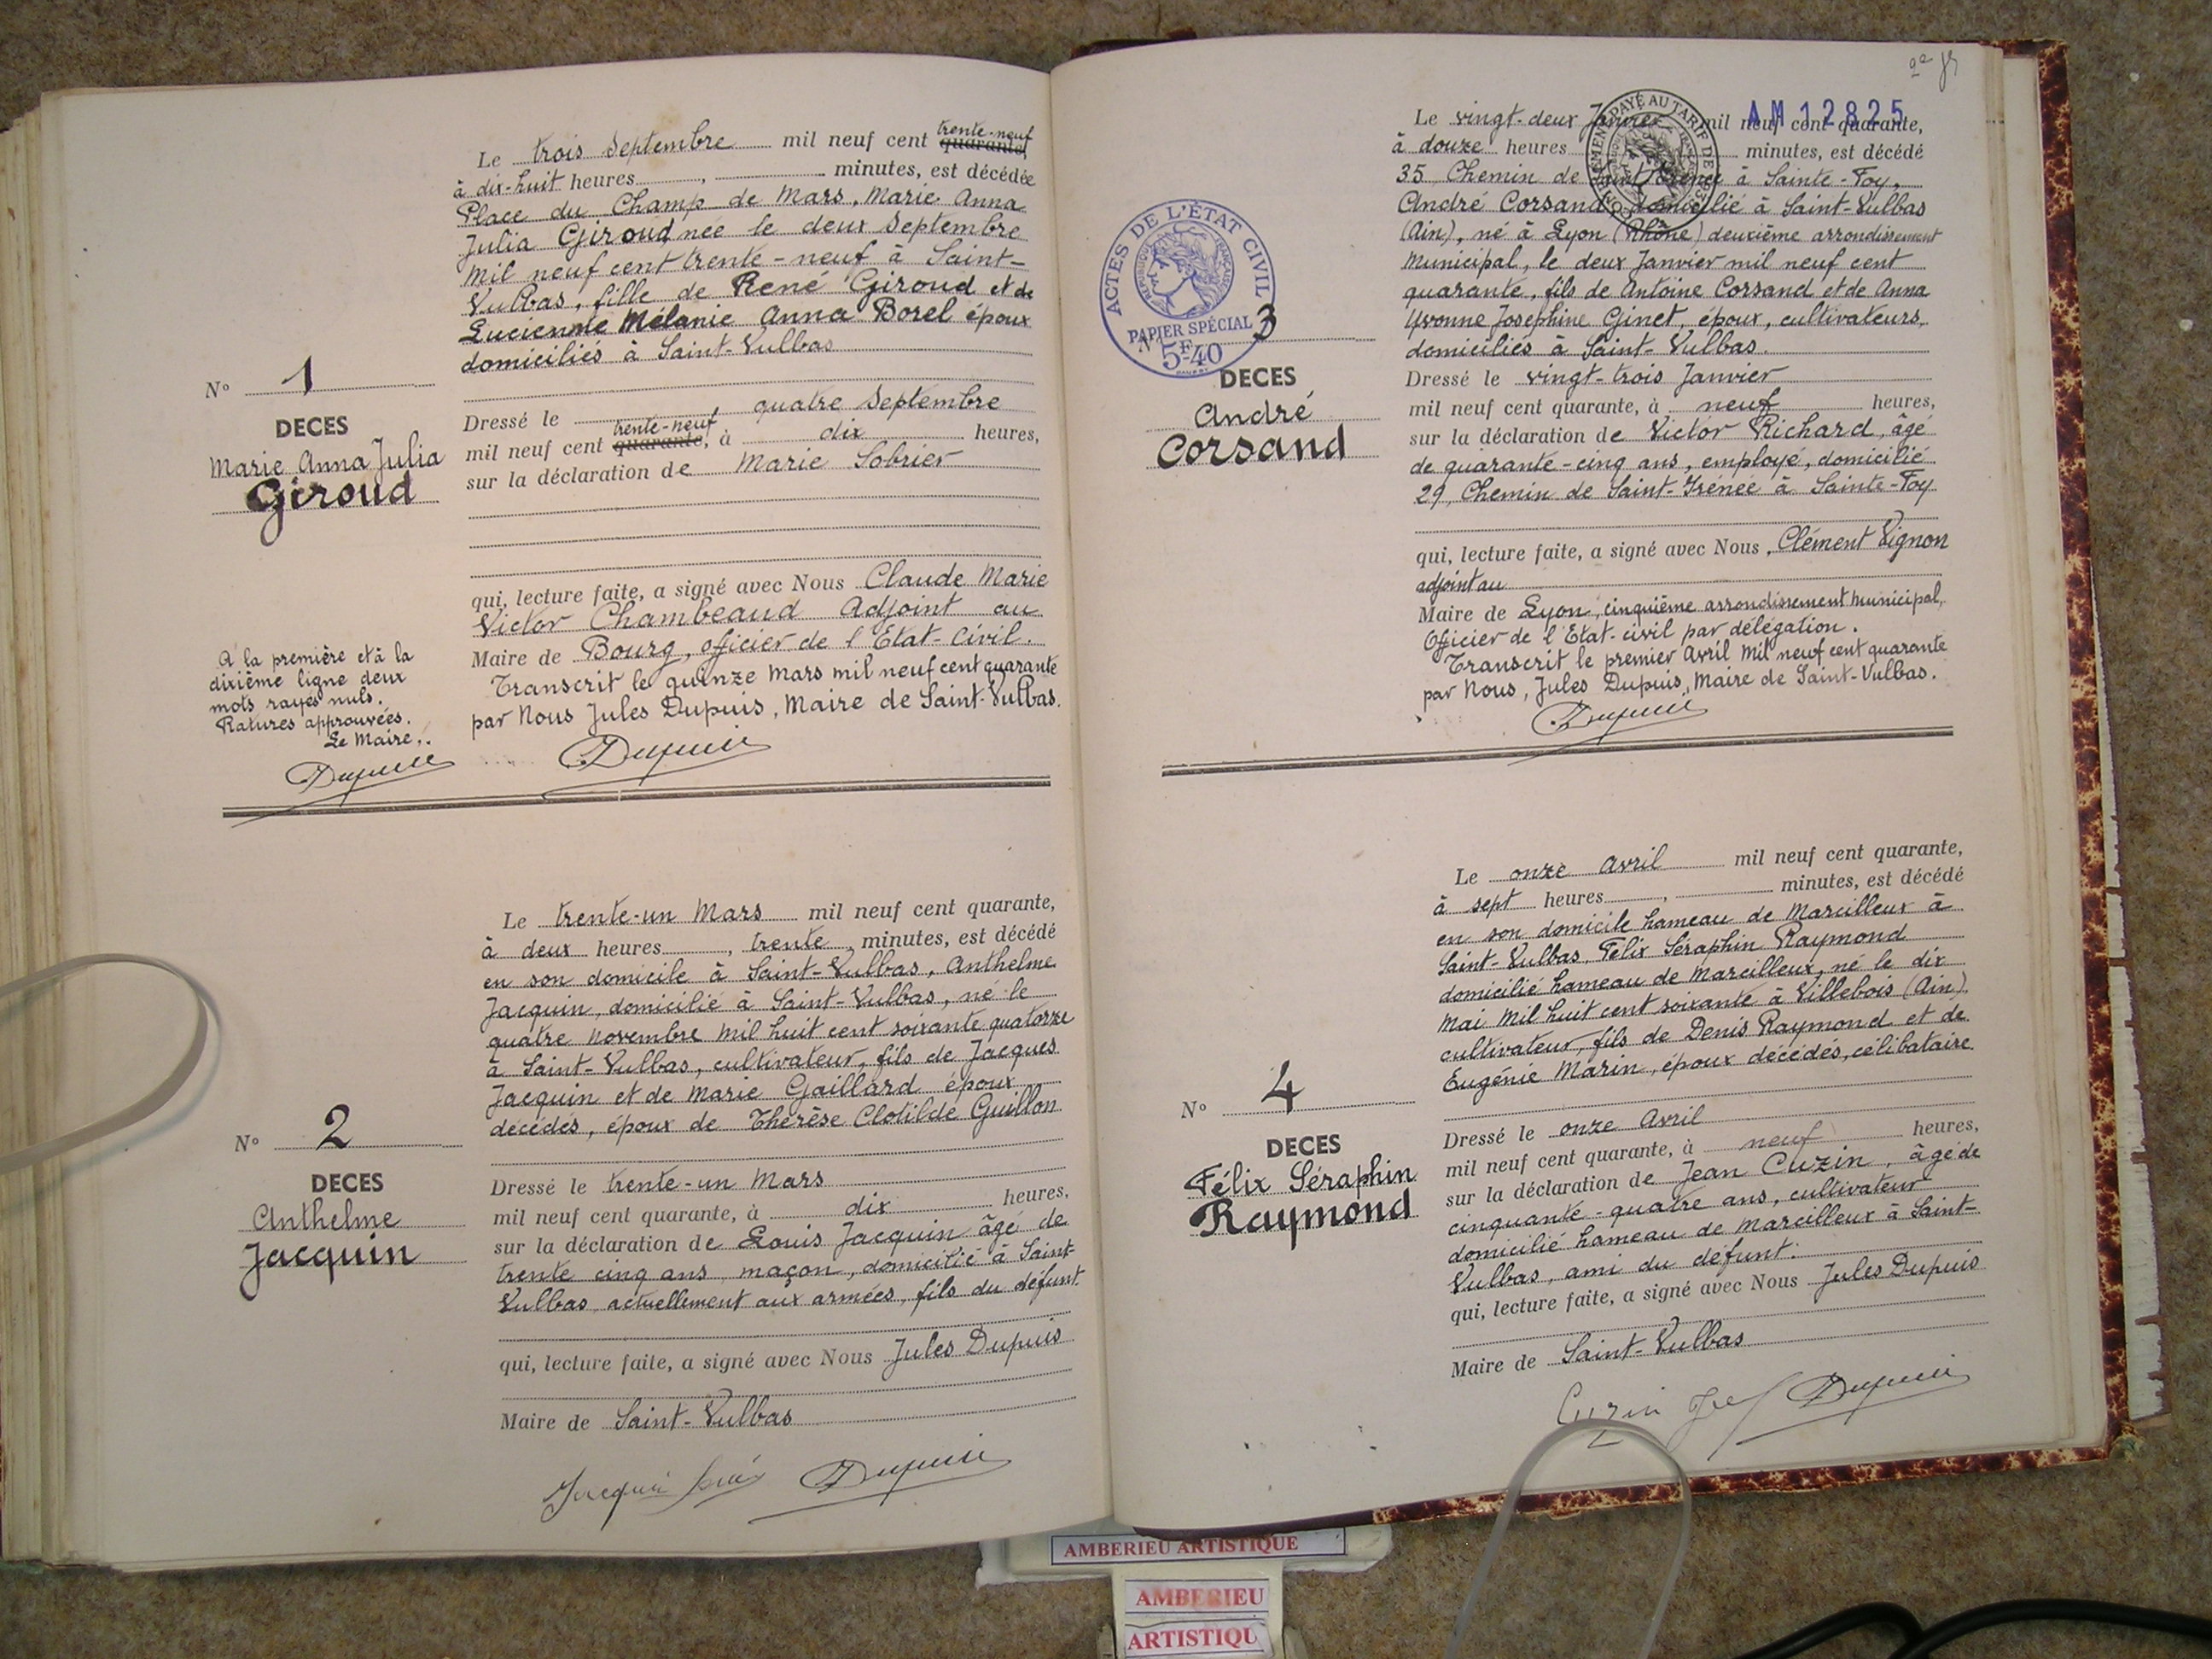 Le trois Septembre mil neuf cent trente-neuf quarante,
à dix-huit heures, minutes, est décédée
Place du Champ de Mars, Marie Anna
Julia Giroud née le deux Septembre
mil neuf cent trente-neuf à Saint-
Vulbas, fille de René Giroud et de
Lucienne Mélanie Anna Borel époux
domiciliés à Saint-Vulbas
N° 1
DECES
Marie Anna Julia
Giroud
Dressé le quatre Septembre
mil neuf cent trente-neuf quarante, à dix heures,
sur la déclaration de Marie Sobrier
qui, lecture faite, a signé avec Nous Claude Marie
Victor Chambeaud Adjoint au
Maire de Bourg, officier de l'Etat-Civil.
Transcrit le quinze Mars mil neuf cent quarante
par Nous Jules Dupuis, Maire de Saint-Vulbas.
Dupuis
A la première et à la
dixième ligne deux
mots rayés nuls.
Ratures approuvées.
Le Maire,
Dupuis
Le trente-un Mars mil neuf cent quarante,
à deux heures, trente minutes, est décédé
en son domicile à Saint-Vulbas, Anthelme
Jacquin, domicilié à Saint-Vulbas, né le
quatre Novembre mil huit cent soixante quatorze
à Saint-Vulbas, cultivateur, fils de Jacques
Jacquin et de Marie Gaillard époux
décédés, époux de Thérèse Clotilde Guillon
N° 2
DECES
Anthelme
Jacquin
Dressé le trente-un Mars
mil neuf cent quarante, à dix heures,
sur la déclaration de Louis Jacquin âgé de
trente cinq ans, maçon, domicilié à Saint-
Vulbas, actuellement aux armées, fils du défunt.
qui, lecture faite, a signé avec Nous Jules Dupuis
Maire de Saint-Vulbas
Dupuis
AM 12825
Le vingt-deux Janvier mil neuf cent quarante,
à douze heures minutes, est décédé
35 Chemin de Saint Irénée à Sainte-Foy,
André Corsand domicilié à Saint-Vulbas
(Ain), né à Lyon (Rhône) deuxième arrondissement
Municipal, le deux Janvier mil neuf cent
quarante, fils de Antoine Corsand et de Anna
Yvonne Joséphine Ginet, époux, cultivateurs,
domiciliés à Saint-Vulbas.
ACTES DE L'ÉTAT CIVIL
RÉPUBLIQUE FRANÇAISE
PAPIER SPÉCIAL
5F40
N° 3
DECES
André
Corsand
Dressé le vingt-trois Janvier
mil neuf cent quarante, à neuf heures,
sur la déclaration de Victor Richard, âgé
de quarante-cinq ans, employé, domicilié
29, Chemin de Saint-Irénée à Sainte-Foy
qui, lecture faite, a signé avec Nous, Clément Vignon
adjoint au
Maire de Lyon, cinquième arrondissement municipal,
Officier de l'Etat-civil par délégation.
Transcrit le premier Avril mil neuf cent quarante
par Nous, Jules Dupuis, Maire de Saint-Vulbas.
Dupuis
Le onze Avril mil neuf cent quarante,
à sept heures, minutes, est décédé
en son domicile hameau de Marcilleux à
Saint-Vulbas, Félix Séraphin Raymond
domicilié hameau de Marcilleux, né le dix
Mai mil huit cent soixante à Villebois (Ain),
cultivateur, fils de Denis Raymond et de
Eugénie Marin, époux décédés, célibataire
N° 4
DECES
Félix Séraphin
Raymond
Dressé le onze Avril
mil neuf cent quarante, à neuf heures,
sur la déclaration de Jean Cuzin, âgé de
cinquante-quatre ans, cultivateur
domicilié hameau de Marcilleux à Saint-
Vulbas, ami du défunt.
qui, lecture faite, a signé avec Nous Jules Dupuis
Maire de Saint-Vulbas
Cuzin Dupuis
AMBERIEU ARTISTIQUE
AMBERIEU
ARTISTIQU